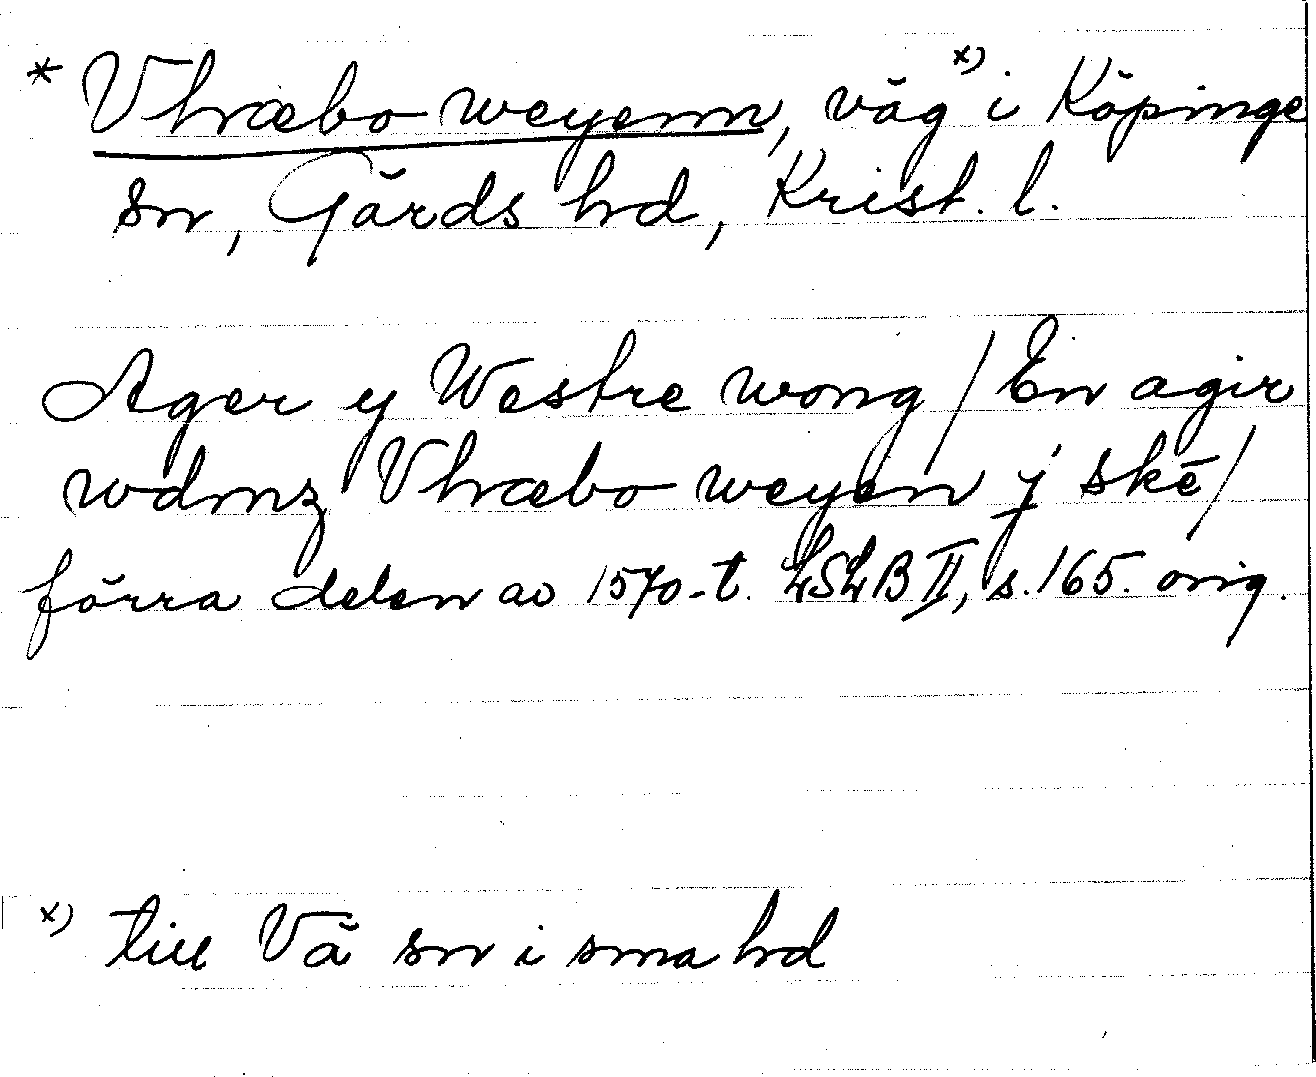 * Vhræbo weyenn, väg x) i Köpinge
sn, Gärds hd, Krist. l.
Ager y Westre wong / En agir
wdmz Vhræbo weyen j skē /
förra delen av 1570-t. LSLB II, s. 165. orig.
x) till Vä sn i sma hd